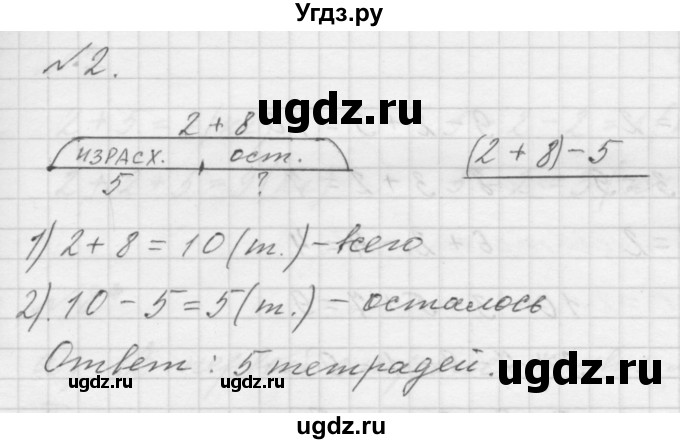 Угдз.ру
№2.
2 + 8
ИЗРАСХ. ОСТ.
5 ?
(2 + 8) - 5
ugdz.ru
ugdz.ru
1) 2 + 8 = 10 (т.) - всего
2). 10 - 5 = 5 (т.) - осталось
Ответ: 5 тетрадей.
ugdz.ru
ugdz.ru
ugdz.ru
ugdz.ru